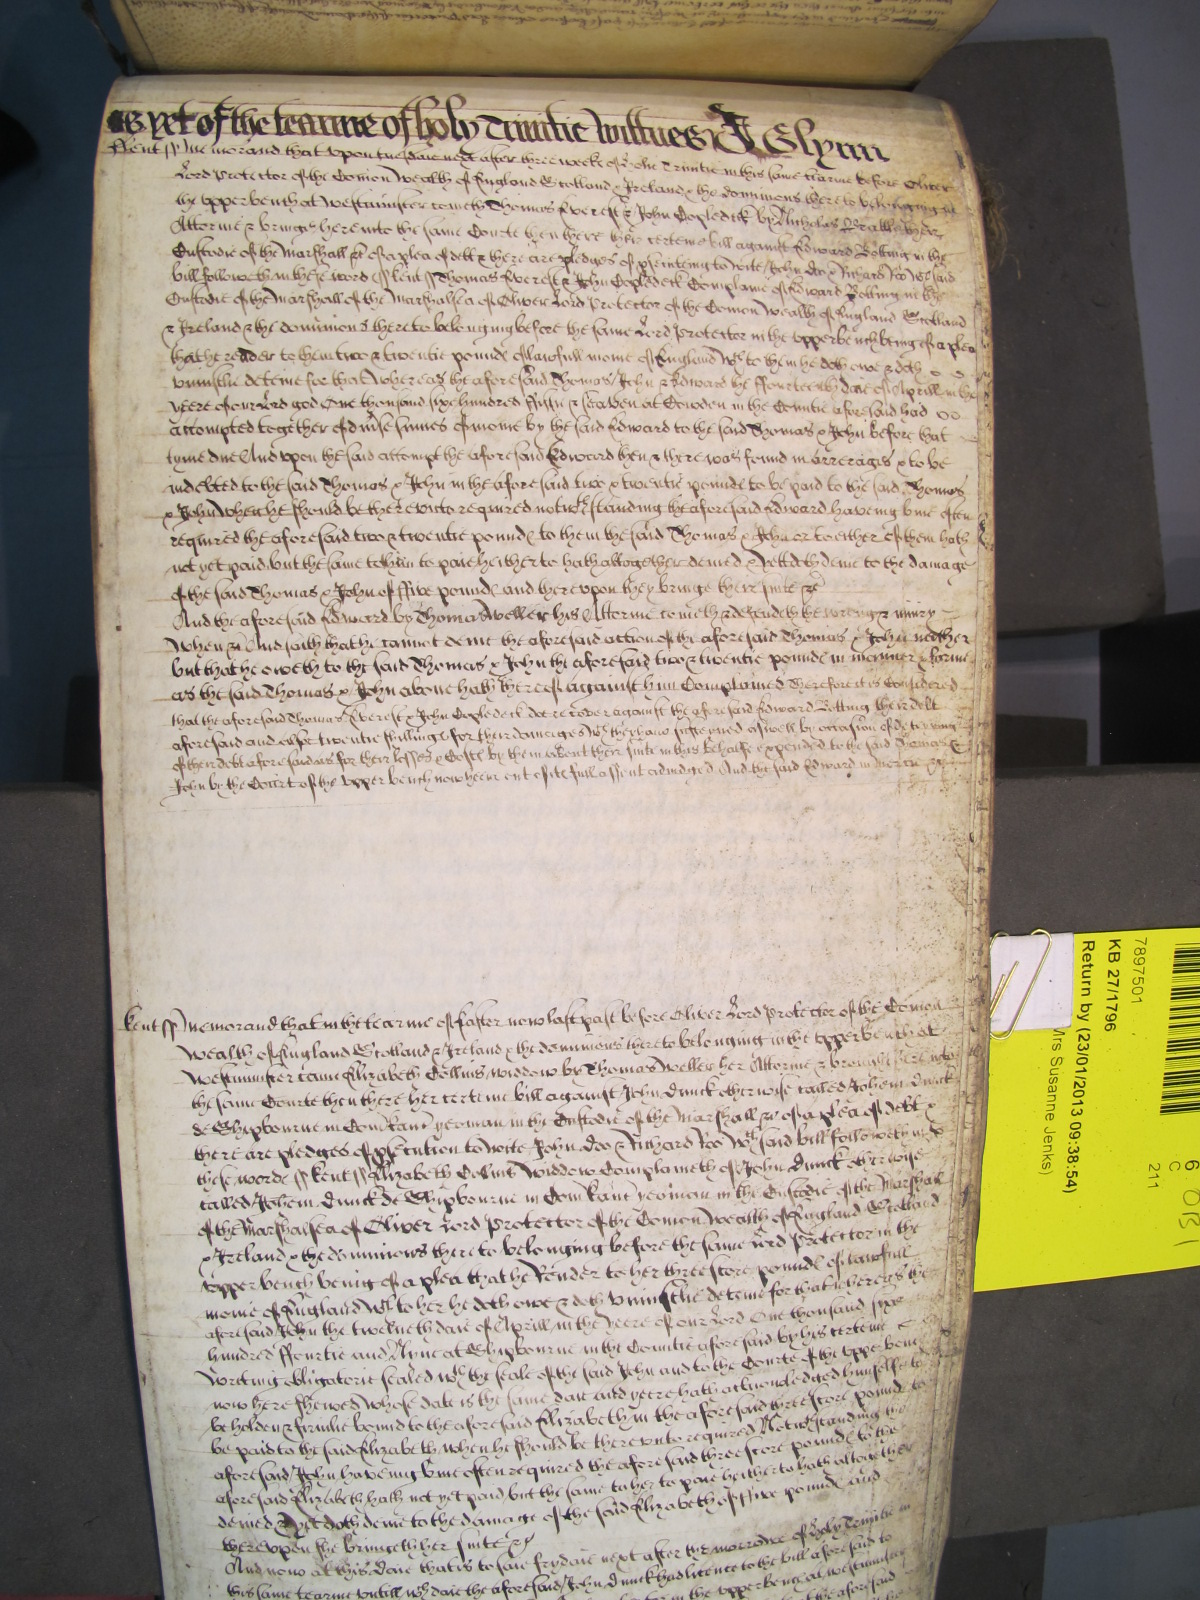 as yet of the tearme of holy Trinitie wittnes J Glynn
Kent ss Memorand that upon tuesdaie next after three weekes of the holie Trinitie in this same tearme before Oliver
Lord Protector of the Comon wealth of England Scotland & Ireland & the dominions thereto belonging in
the upper bench at westminster cometh Thomas Everest & John Copledick by Nicholas his
Attornie & bringe here into the same Courte then there their certeine bill against Edward Botting in the
Custodie of the Marshall &c of a plea of debt & there are pledges of prosecuting to witte John Doo & Richard Roo wch said
bill followeth in these words ss Kent ss Thomas Everest & John Copledick Complaine of Edward Botting in the
Custodie of the Marshall of the Marshalsea of Oliver Lord Protector of the Comon wealth of England Scotland
& Ireland & the dominions thereto belonging before the same Lord Protector in the upper bench being of a plea
that he render to them two & twentie pounds of lawfull monie of England wch to them he doth owe & doth
uniustlie deteine for that whereas the aforesaid Thomas John & Edward the ffourteenth daie of Aprill in the
yeere of our Lord god One thousand sixe hundred fiftie & seaven at Cowden in the Countie aforesaid had
accompted together of diverse summes of monie by the said Edward to the said Thomas & John before that
tyme due And upon the said accompt the aforesaid Edward then & there was found in arrerages & to be
indebted to the said Thomas & John in the aforesaid two & twentie pounds to be paid to the said Thomas
& John when he should be thereunto required notwthstanding the aforesaid Edward haveing bine often
required the aforesaid two & twentie pounds to them the said Thomas & John or to either of them hath
not yet paid but the same to them to paie hitherto hath altogether denied & yett doth denie to the damage
of the said Thomas & John of ffive pounds and thereupon they bringe there suite &c
And the aforesaid Edward by Thomas Weller his Attornie cometh & defendeth the wrong & iniury
when &c And saith that he cannot denie the aforesaid action of the aforesaid Thomas & John neither
but that he oweth to the said Thomas & John the aforesaid two & twentie pounds in manner & forme
as the said Thomas & John above hath thereof against him Complained Therefore it is Considered
that the aforesaid Thomas Everest & John Copledick doe recover against the aforesaid Edward Botting their debt
aforesaid and alsoe twentie shillings for their damages wch they have susteyned aswell by occasion of deteyning
of their debt aforesaid as for their losses & Costs by them about their suite in this behalfe expended to the said Thomas &
John by the Court of the upper bench now heere of their full assent adiudged And the said Edward in mercie &c
Kent ss Memorand that in the tearme of Easter now last past before Oliver Lord Protector of the Comon
wealth of England Scotland & Ireland & the dominions thereto belonging in the upper bench at
westminster came Elizabeth Collins widdow by Thomas Weller her Attornie & brought here into
the same Courte then there her certeine bill against John Dunck otherwise called Johem Dunck
de Shipbourne in Com Kanc yeoman in the Custodie of the Marshall &c of a plea of debt &
there are pledges of prosecution to witte John Doo & Richard Roo wch said bill followeth in
these words ss Kent ss Elizabeth Collins widdow Complaineth of John Dunck otherwise
called Johem Dunck de Shipbourne in Com Kanc yeoman in the Custodie of the Marshall
of the Marshalsea of Oliver Lord Protector of the Comon wealth of England Scotland
& Ireland & the dominions thereto belonging before the same Lord Protector in the
upper bench being of a plea that he Render to her threescore pounds of lawfull
monie of England wch to her he doth owe & doth uniustlie deteine for that whereas the
aforesaid John the twelveth daie of Aprill in the yeere of our Lord One thousand sixe
hundred ffourtie and Nyne at Shipbourne in the Countie aforesaid by his certeine
writing obligatorie sealed wth the seale of the said John and to the Courte of the upper bench
now here shewed whose date is the same daie and yeere hath acknowledged himselfe to
be holden & firmlie bound to the aforesaid Elizabeth in the aforesaid threescore pounds to
be paid to the said Elizabeth when he should be thereunto required Notwthstanding the
aforesaid John haveing bine often required the aforesaid threescore pounds to the
aforesaid Elizabeth hath not yet paid but the same to her to paie hitherto hath altogether
denied & yet doth denie to the damage of the said Elizabeth of ffive pounds and
thereupon she bringeth her suite &c
And now at this daie that is to saie frydaie next after the morrowe of holy Trinitie in
this same tearme untill wch daie the aforesaid John Dunck had licence to the bill aforesaid to
in the upper bench at westminster
the aforesaid
7897501
KB 27/1796
Return by (23/01/2013 09:38:54)
Mrs Susanne Jenks)
6
C
211